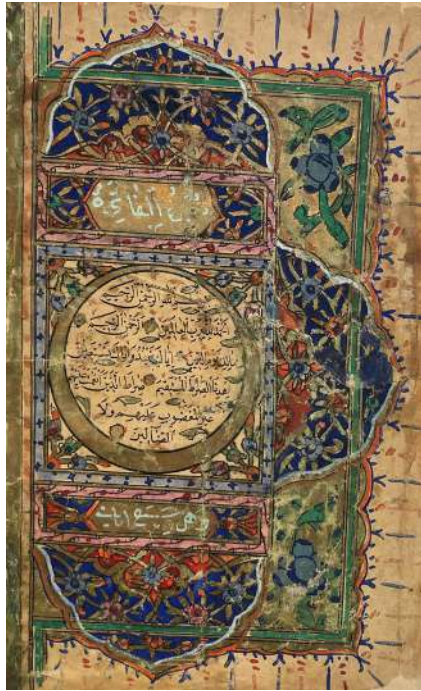 سورة الفاتحة
بسم الله الرحمن الرحيم
الحمد لله رب العالمين الرحمن الرحيم
ملك يوم الدين إياك نعبد وإياك نستعين
اهدنا الصراط المستقيم صراط الذين أنعمت عليهم
غير المغضوب عليهم ولا
الضالين
وهي سبع آيات